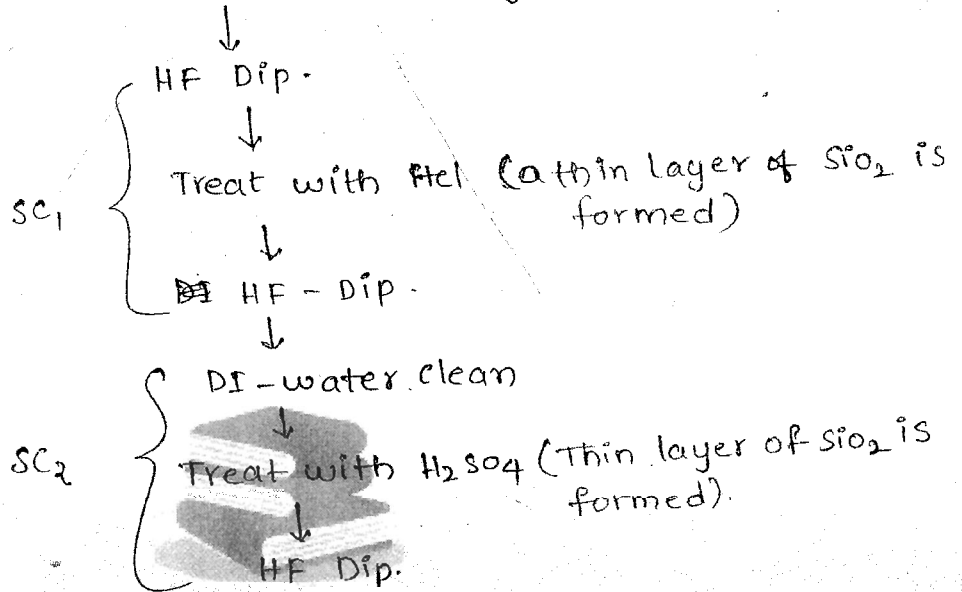 ↓
HF Dip.
↓
Treat with Hcl (a thin layer of SiO₂ is
formed)
SC₁
↓
HF - Dip.
↓
DI - water clean
↓
SC₂
Treat with H₂SO₄ (Thin layer of SiO₂ is
formed).
↓
HF Dip.